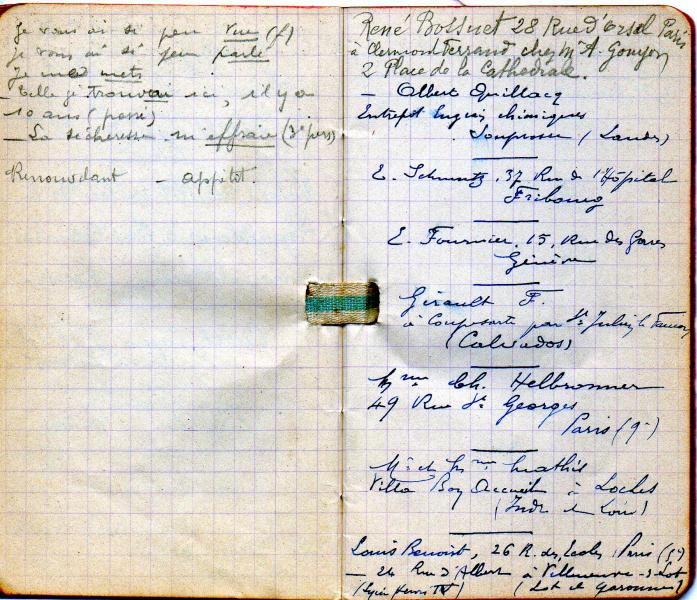 Je vous ai si peu vue (f)
Je vous ai si peu parlé
Je me mets
– Telle je trouvai ici, il y a
10 ans (passé)
– La sécheresse m'effraie (3e pers)
– appétit.
René Bossuet 28 Rue d'Orsel Paris
à Clermont Ferrand chez Mr A. Gouyon
2 Place de la Cathédrale.
– Albert Quillacq
Entrepôt Engrais chimiques
Souprosse (Landes)
E. Schmutz, 37 Rue de l'Hôpital
Fribourg
E. Fournier, 15, Rue des Gares
Genève
Girault F.
à Coupesarte par St Julien le Faucon
(Calvados)
Mme Ch. Helbronner
49 Rue St Georges
Paris (9e)
Mr et Mme Mathis
Villa Bon Accueil à Loches
(Indre et Loire)
Louis Benoist, 26 R. des Ecoles Paris (5e)
– 24 Rue d'Albert à Villeneuve-s-Lot
(Lycée Henri IV) (Lot et Garonne)